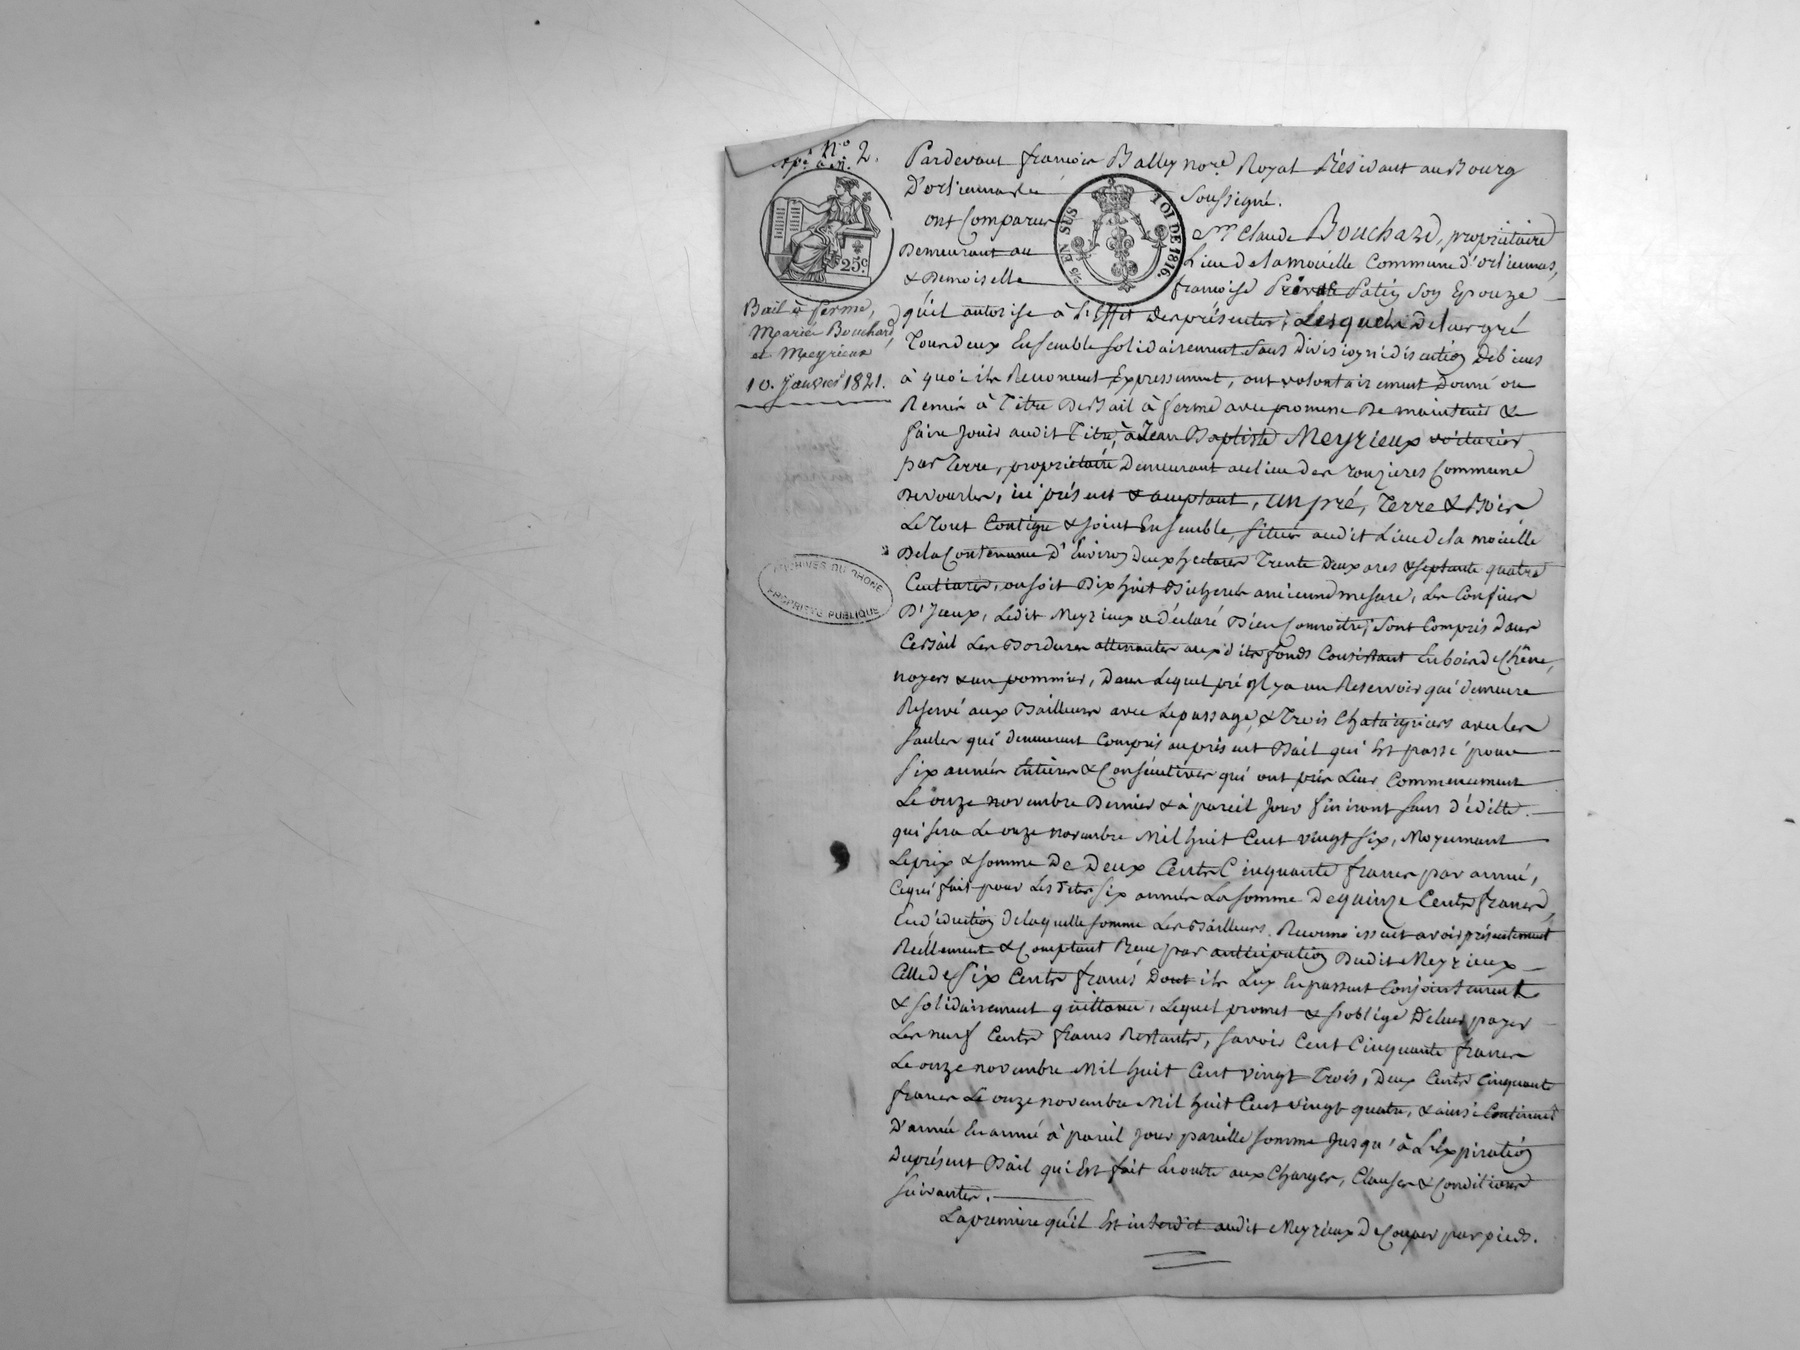 N.° 2.
25.c
Bail à ferme,
Mariés Bouchard,
et Meyrieux
10. Janvier 1821.
ARCHIVES DU RHONE
PROPRIÉTÉ PUBLIQUE
EN SUS LOI DE 1816.
Pardevant françois Balley no.re Royal Résidant au Bourg
D'orliennas soussigné.
ont Comparus Mr. Claude Bouchard, propriétaire
Demeurant au Lieu de la moüelle Commune d'orliennas,
& Demoiselle françoise Patin Son Epouze
qu'il autorise à l'Effet des présentes; Lesquels de leur gré
Tous deux Ensemble solidairement sans division ni discution de biens
à quoi ils Renoncent Expressement, ont volontairement donné ou
Remis à Titre De Bail à ferme avec promesse De maintenir &
faire Jouir audit Titre, à Jean Baptiste Meyrieux voiturier
par Terre, propriétaire Demeurant au lieu des ronzieres Commune
De vourles, ici présent & acceptant, un pré, Terre & Bois
Le Tout Contigu & Joint Ensemble, situés audit Lieu de la moüelle
De la Contenance d'Environ deux hectares Trente deux ares & septante quatre
Centiares, ou soit Dix huit Bicherées ancienne mesure, Les Confins
D'Iceux, Ledit Meyrieux a déclaré Bien Connoitre; sont Compris dans
Ce Bail Les Bordures attenantes aux dits fonds Consistant En bois de Chêne,
noyers & un pommier, dans Lequel pré Il y a un Reservoir qui demeure
Reservé aux Bailleurs avec Le passage, & Trois Chataigniers avec les
saules qui demeurent Compris au présent Bail qui Est passé pour
six années Entieres & Consécutives qui ont pris Leur Commencement
Le onze novembre Dernier & à pareil Jour finiront sans d'éditte.
qui sera Le onze novembre Mil huit Cent vingt six, Moyennant
Le prix & somme De Deux Cents Cinquante francs par année,
Ce qui fait pour Les dites six années La somme De quinze Cents francs,
En d'éduction de laquelle somme Les Bailleurs Reconnoissent avoir présentement
Réellement & Comptant Reçu par anticipation Dudit Meyrieux
Celle de six Cents francs Dont ils Lux En passent Conjointement
& solidairement quittance, Lequel promet & s'oblige De leur payer
Les neuf Cents francs Restants, savoir Cent Cinquante francs
Le onze novembre Mil huit Cent vingt Trois, Deux Cents Cinquante
francs Le onze novembre Mil huit Cent vingt quatre, & ainsi Continuer
D'année En année à pareil Jour pareille somme Jusqu'à L'Expiration
Du présent Bail qui Est fait En outre aux Charges, Clauses & Conditions
suivantes.
La premiere qu'il Est interdit audit Meyrieux De Couper par pieds.